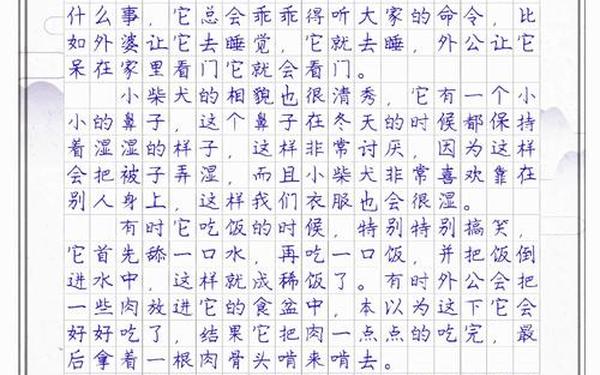 什么事，它总会乖乖得听大家的命令，比
如外婆让它去睡觉，它就去睡，外公让它
呆在家里看门它就会看门。
小柴犬的相貌也很清秀，它有一个小
小的鼻子，这个鼻子在冬天的时候都保持
着湿湿的样子，这样非常讨厌，因为这样
会把被子弄湿，而且小柴犬非常喜欢靠在
别人身上，这样我们衣服也会很湿。
有时它吃饭的时候，特别特别搞笑，
它首先舔一口水，再吃一口饭，并把饭倒
进水中，这样就成稀饭了。有时外公会把
一些肉放进它的食盆中，本以为这下它会
好好吃了，结果它把肉一点点的吃完，最
后拿着一根肉骨头啃来啃去。